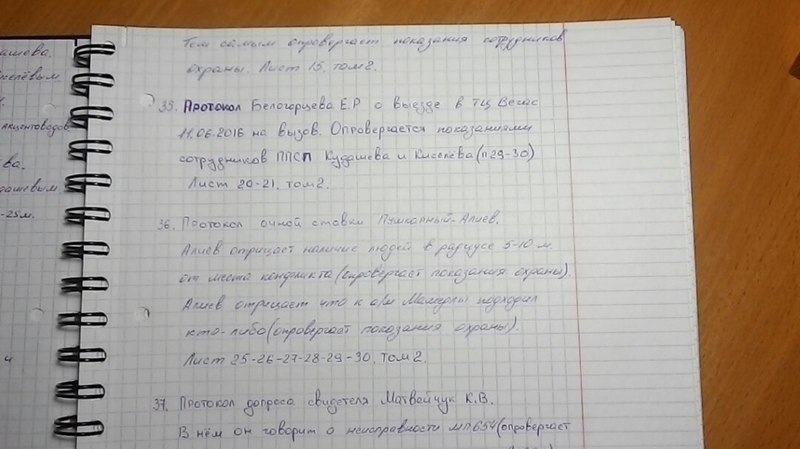 ашова.
селёвым.
акцентоводов
ва.
дашевым
-25м.
Тем самым опровергает показания сотрудников
охраны. Лист 15, том 2.
35. Протокол Белогорцева Е.Р о выезде в ТЦ Вегас
11.06.2016 на вызов. Опровергается показаниями
сотрудников ППСП Кудашева и Киселева (п29-30)
Лист 20-21, том 2.
36. Протокол очной ставки Пушкарный-Алиев.
Алиев отрицает наличие людей в радиусе 5-10 м.
от места конфликта (опровергает показания охраны).
Алиев отрицает что к а/м Мамедлы подходил
кто-либо (опровергает показания охраны).
Лист 25-26-27-28-29-30, том 2.
37. Протокол допроса свидетеля Матвейчук К.В.
В нём он говорит о неисправности МП654 (опровергает